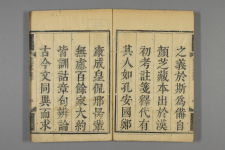 之義於斯爲備自
顏芝藏本出於漢
初考註箋釋代有
其人如孔安國鄭
康成皇侃邢昺輩
無慮百餘家大約
皆訓詁章句辯論
古今文同異而求